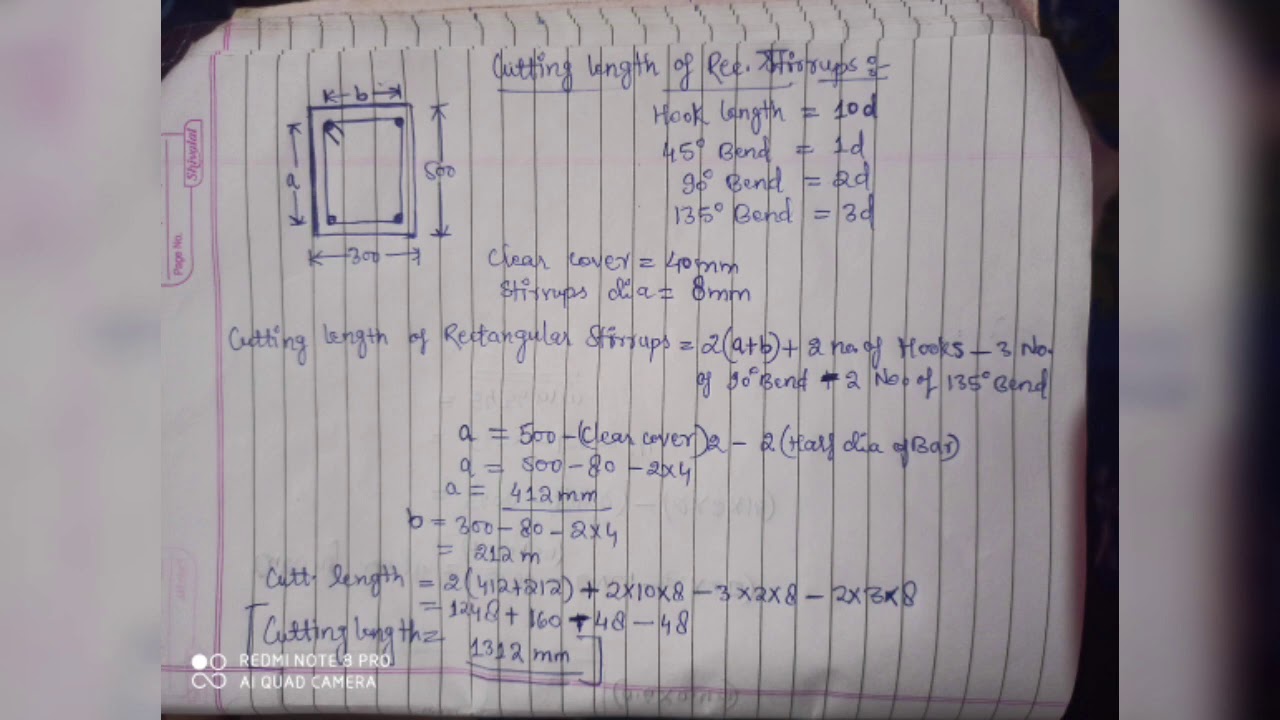 Cutting length of Rec. Stirrups :-
Hook length = 10d
45° Bend = 1d
90° Bend = 2d
135° Bend = 3d
b
a
500
300
Clear cover = 40mm
Stirrups dia = 8mm
Cutting length of Rectangular Stirrups = 2(a+b) + 2 no. of Hooks - 3 No.
of 90° Bend - 2 No. of 135° Bend
a = 500 - (Clear cover)2 - 2(Half dia of Bar)
a = 500 - 80 - 2×4
a = 412mm
b = 300 - 80 - 2×4
= 212 m
Cutt. length = 2(412+212) + 2×10×8 - 3×2×8 - 2×3×8
= 1248 + 160 - 48 - 48
[Cutting length =
1312 mm]
Shivalal
Page No.
REDMI NOTE 8 PRO
AI QUAD CAMERA